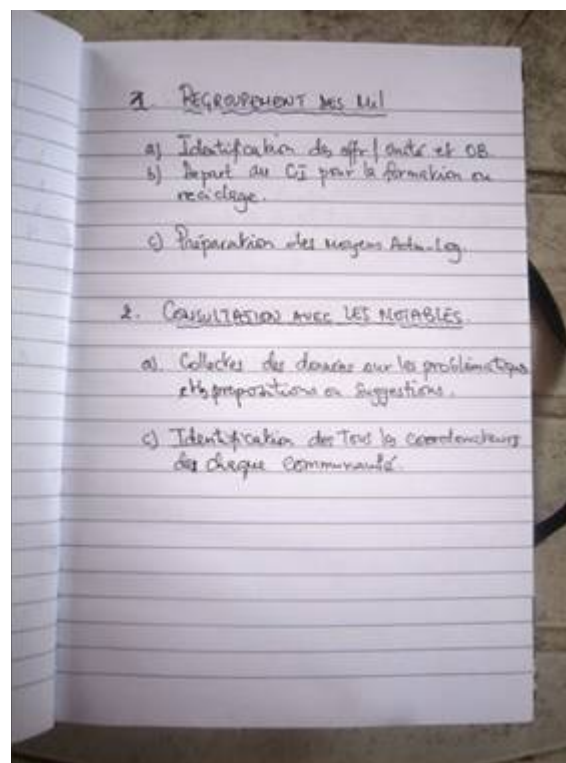 1. REGROUPEMENT DES Mil
a) Identification des offr / unité et OB.
b) Depart au CI pour la formation ou
reciclage.
c) Préparation des moyens Adm-Log.
2. CONSULTATION AVEC LES NOTABLES.
a). Collectes des données sur les problématiques
propositions ou Suggestions.
c) Identification des Tous les coordonateurs
des chaque Communauté.